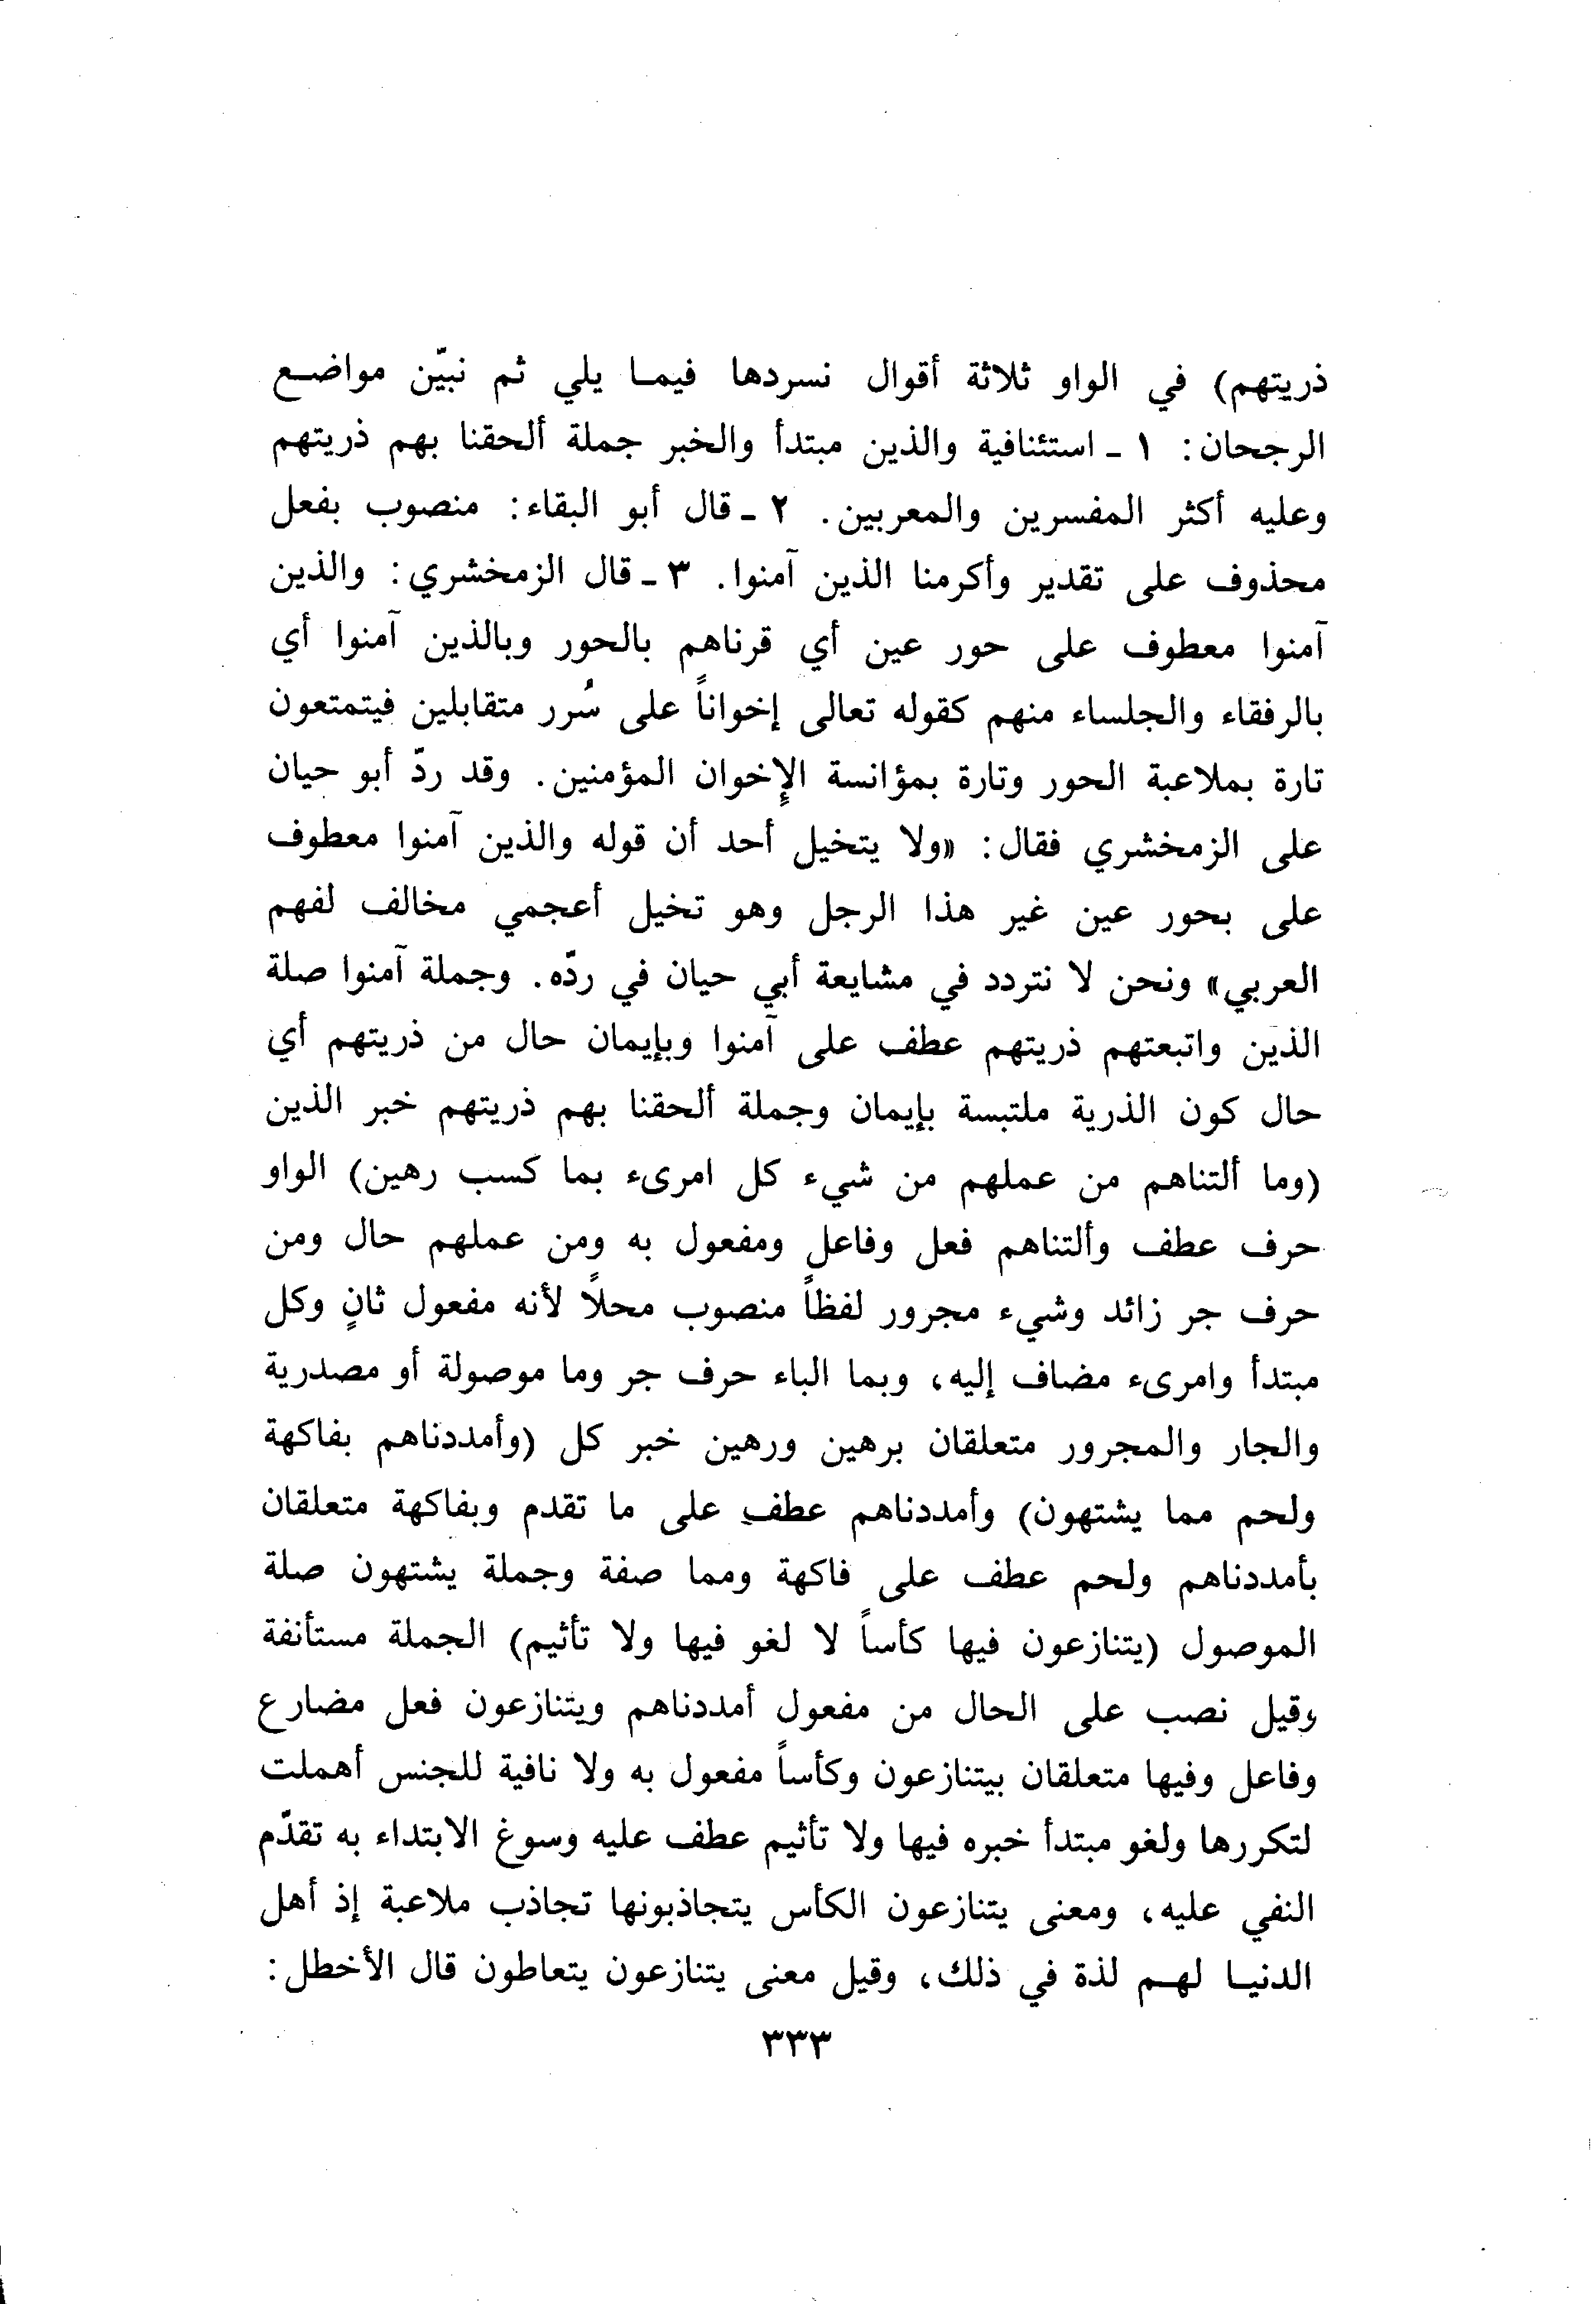 ذريتهم) في الواو ثلاثة أقوال نسردها فيمـا يلي ثم نبيّن مواضـع
الرجحان: ١ ـ استئنافية والذين مبتدأ والخبر جملة ألحقنا بهم ذريتهم
وعليه أكثر المفسرين والمعربين. ٢ ـ قال أبو البقاء: منصوب بفعل
محذوف على تقدير وأكرمنا الذين آمنوا. ٣ ـ قال الزمخشري: والذين
آمنوا معطوف على حور عين أي قرناهم بالحور وبالذين آمنوا أي
بالرفقاء والجلساء منهم كقوله تعالى إخواناً على سُرر متقابلين فيتمتعون
تارة بملاعبة الحور وتارة بمؤانسة الإخوان المؤمنين. وقد ردّ أبو حيان
على الزمخشري فقال: «ولا يتخيل أحد أن قوله والذين آمنوا معطوف
على بحور عين غير هذا الرجل وهو تخيل أعجمي مخالف لفهم
العربي» ونحن لا نتردد في مشايعة أبي حيان في ردّه. وجملة آمنوا صلة
الذين واتبعتهم ذريتهم عطف على آمنوا وبإيمان حال من ذريتهم أي
حال كون الذرية ملتبسة بإيمان وجملة ألحقنا بهم ذريتهم خبر الذين
(وما ألتناهم من عملهم من شيء كل امرىء بما كسب رهين) الواو
حرف عطف وألتناهم فعل وفاعل ومفعول به ومن عملهم حال ومن
حرف جر زائد وشيء مجرور لفظاً منصوب محلاً لأنه مفعول ثانٍ وكل
مبتدأ وامرىء مضاف إليه، وبما الباء حرف جر وما موصولة أو مصدرية
والجار والمجرور متعلقان برهين ورهين خبر كل (وأمددناهم بفاكهة
ولحم مما يشتهون) وأمددناهم عطف على ما تقدم وبفاكهة متعلقان
بأمددناهم ولحم عطف على فاكهة ومما صفة وجملة يشتهون صلة
الموصول (يتنازعون فيها كأساً لا لغو فيها ولا تأثيم) الجملة مستأنفة
وقيل نصب على الحال من مفعول أمددناهم ويتنازعون فعل مضارع
وفاعل وفيها متعلقان بيتنازعون وكأساً مفعول به ولا نافية للجنس أهملت
لتكررها ولغو مبتدأ خبره فيها ولا تأثيم عطف عليه وسوغ الابتداء به تقدّم
النفي عليه، ومعنى يتنازعون الكأس يتجاذبونها تجاذب ملاعبة إذ أهل
الدنيـا لهـم لذة في ذلك، وقيل معنى يتنازعون يتعاطون قال الأخطل:
٣٣٣